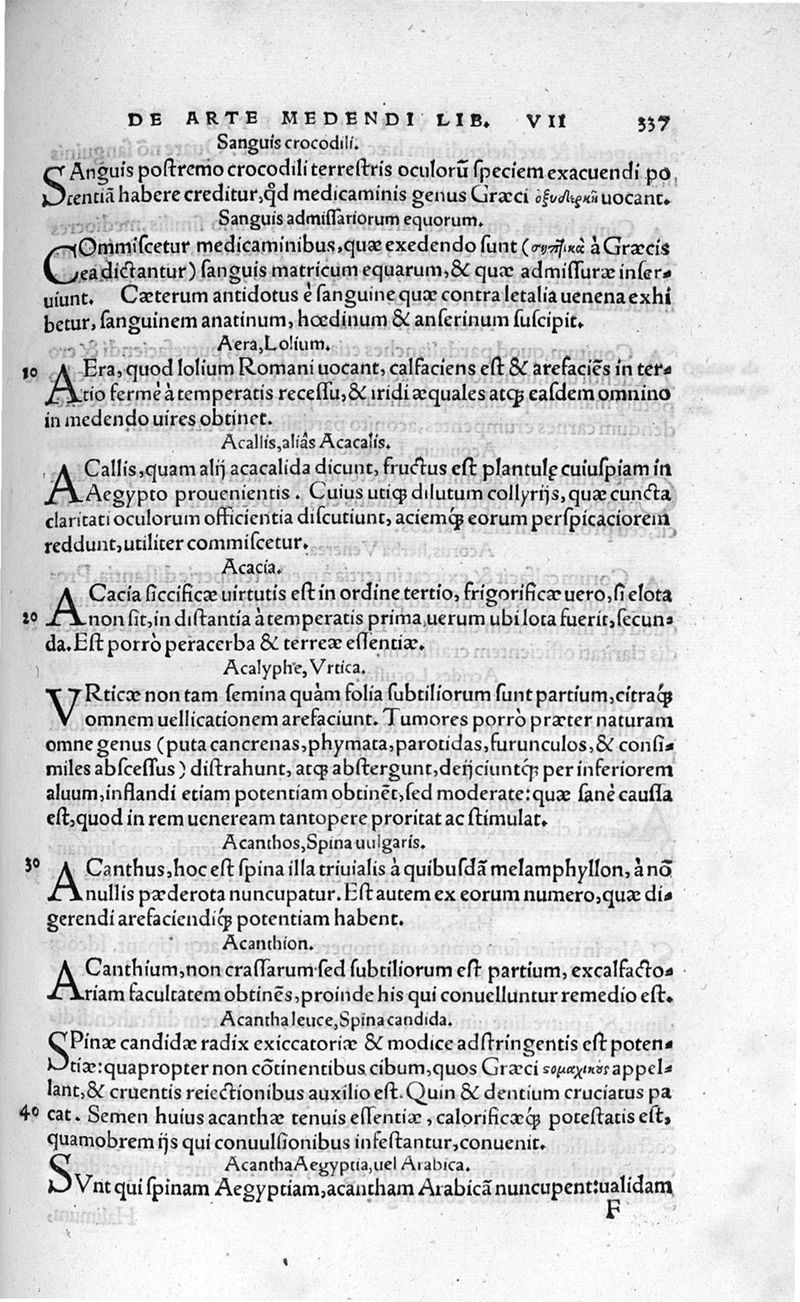 DE ARTE MEDENDI LIB. VII 337
Sanguis crocodili.
SAnguis postremo crocodili terrestris oculorũ speciem exacuendi po
tentiã habere creditur, qđ medicaminis genus Græci ὀξυδερκῆ uocant.
Sanguis admissariorum equorum.
COmmiscetur medicaminibus, quæ exedendo sunt (σηπτικὰ à Græcis
ea dictantur) sanguis matricum equarum, & quæ admissuræ inser-
uiunt. Cæterum antidotus è sanguine quæ contra letalia uenena exhi
betur, sanguinem anatinum, hœdinum & anserinum suscipit.
Aera, Lolium.
10 AEra, quod lolium Romani uocant, calfaciens est & arefaciẽs in ter-
tio fermè à temperatis recessu, & iridi æquales atq; easdem omnino
in medendo uires obtinet.
Acallis, aliâs Acacalis.
ACallis, quam alij acacalida dicunt, fructus est plantulę cuiuspiam in
Aegypto prouenientis. Cuius utiq; dilutum collyrijs, quæ cuncta
claritati oculorum officientia discutiunt, aciemq́; eorum perspicaciorem
reddunt, utiliter commiscetur.
Acacia.
ACacia siccificæ uirtutis est in ordine tertio, frigorificæ uero, si elota
20 non sit, in distantia à temperatis prima, uerum ubi lota fuerit, secun-
da. Est porrò peracerba & terreæ essentiæ.
Acalyphe, Vrtica.
VRticæ non tam semina quàm folia subtiliorum sunt partium, citraq́;
omnem uellicationem arefaciunt. Tumores porrò præter naturam
omne genus (puta cancrenas, phymata, parotidas, furunculos, & consi-
miles abscessus) distrahunt, atq; abstergunt, deijciuntq́; per inferiorem
aluum, inflandi etiam potentiam obtinẽt, sed moderate: quæ sanè caussa
est, quod in rem ueneream tantopere proritat ac stimulat.
Acanthos, Spina uulgaris.
30 ACanthus, hoc est spina illa triuialis à quibusdã melamphyllon, à nõ
nullis pæderota nuncupatur. Est autem ex eorum numero, quæ di-
gerendi arefaciendiq́; potentiam habent.
Acanthion.
ACanthium, non crassarum sed subtiliorum est partium, excalfacto-
riam facultatem obtinẽs, proinde his qui conuelluntur remedio est.
Acantha leuce, Spina candida.
SPinæ candidæ radix exiccatoriæ & modice adstringentis est poten-
tiæ: quapropter non cõtinentibus cibum, quos Græci στομαχικοὺς appel-
lant, & cruentis reiectionibus auxilio est. Quin & dentium cruciatus pa
40 cat. Semen huius acanthæ tenuis essentiæ, calorificæq́; potestatis est,
quamobrem ijs qui conuulsionibus infestantur, conuenit.
Acantha Aegyptia, uel Arabica.
SVnt qui spinam Aegyptiam, acantham Arabicã nuncupent: ualidam
F